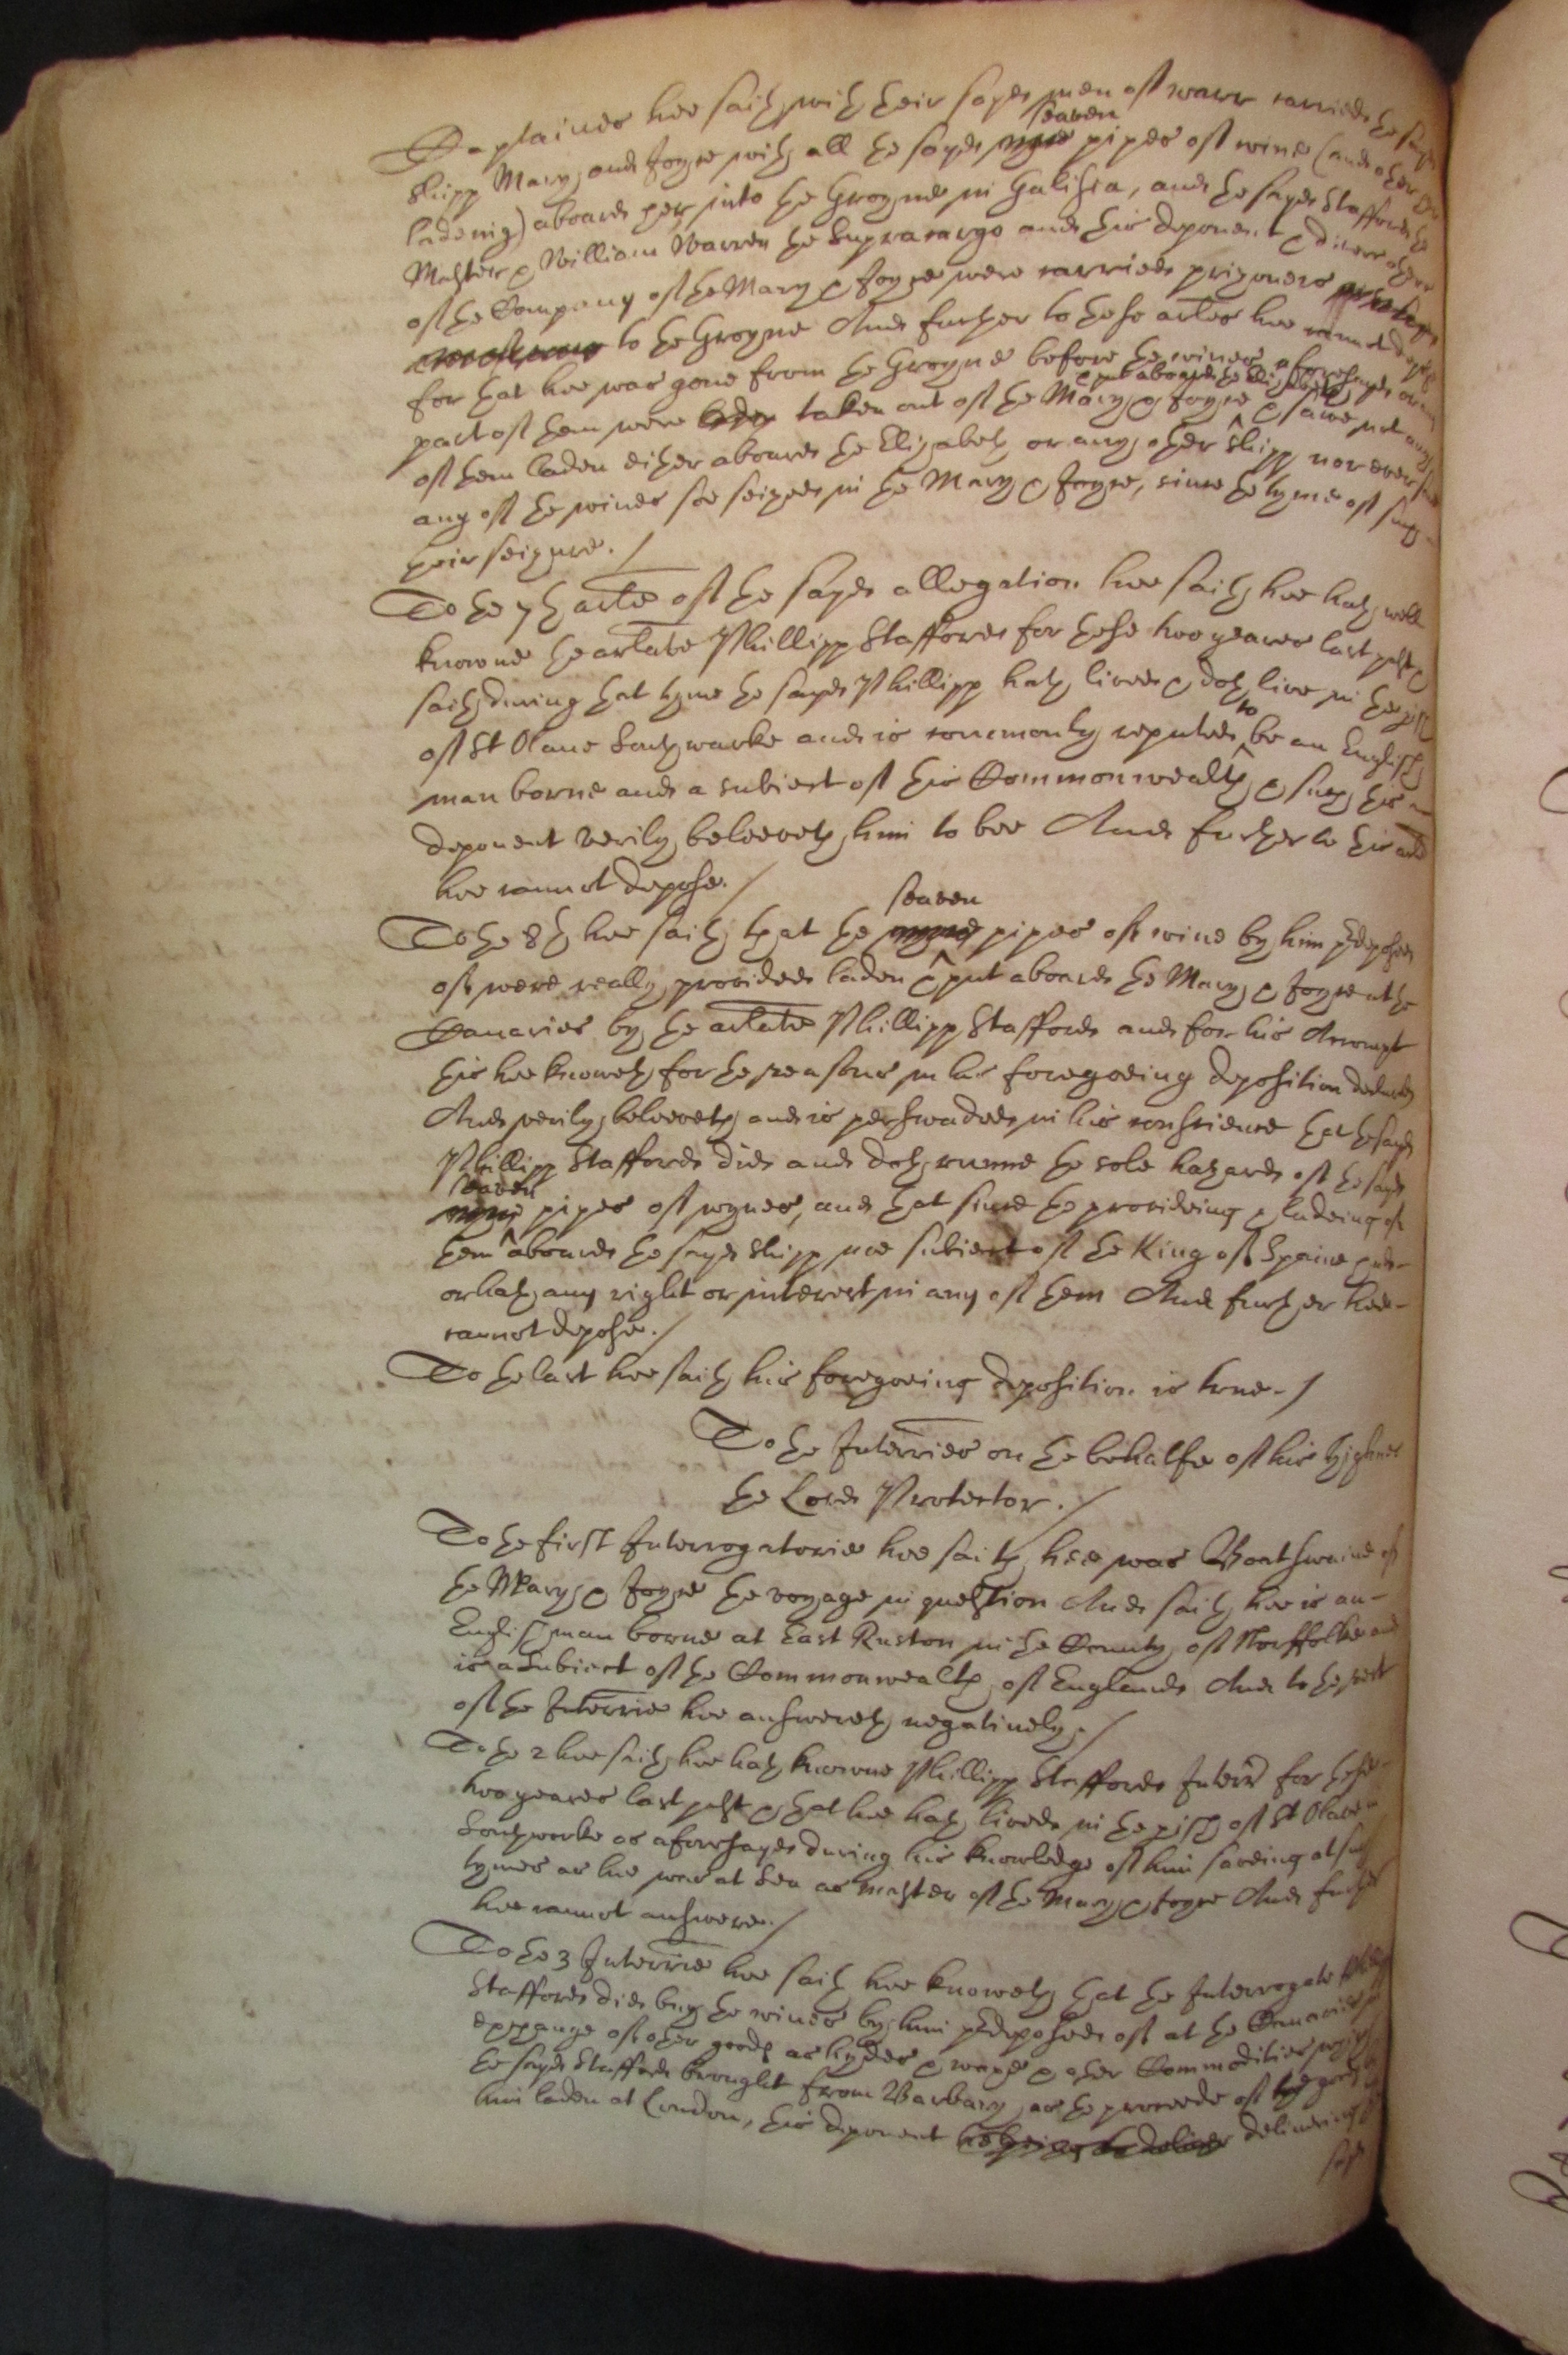 Captaines hee saith with their sayd men of warr carried the sayd
shipp Mary and Joyce with all the sayd nyne seaven pipes of wine (and other
ladeing) aboard her into the Groyne in Galisia, and the sayd Stafford the
Master & William Warren the Supracargo and this deponent & divers others
of the Company of the Mary & Joyce were carried prizoners
to the Groyne And further to these arles hee cannot depose
for that hee was gone from the Groyne before the wines aforesayd or any
part of them were laden taken out of the Mary & Joyce & put aboard the Elizabeth & sawe not any
of them laden either aboard the Elizabeth or any other shipp nor ever sawe
any of the wines soe seized in the Mary & Joyce, since the tyme of such
their seizure./
To the 7th arle of the sayd allegation hee saith hee hath well
knowne the arlate Phillipp Stafford for these two yeares last past &
saith during that tyme the sayd Phillipp hath lived & doth live in the pish
of St Olave Southwarke and is commonly reputed to be an English
man borne and a subiect of this Commonwealth & such this
deponent verily beleeveth him to bee And further to this arle
hee cannot depose./
To the 8th hee saith that the nyne seaven pipes of wine by him predeposed
of were really provided laden & put aboard the Mary & Joyce at the
Canaries by the arlate Phillipp Stafford and for his Accompt
this hee knoweth for the reasons in his foregoeing deposition declared
And verily beleeveth and is perswaded in his conscience that the sayd
Phillipp Stafford did and doth runne the sole hazard of the sayd
nyne seaven pipes of wynes, and that since the provideing & ladeing of
them aboard the sayd shipp noe subiect of the King of Spaine had
or hath any right or interest in any of them And further hee
cannot depose./
To the last hee saith his foregoeing deposition is true./
To the Interries on the behalfe of his Highnes
the Lord Protector./
To the first Interrogatorie hee saith hee was Boatswaine of
the Mary & Joyce the voyage in question And saith hee is an
Englishman borne at East Ruston in the County of Norffolke and
is a Subiect of the Commonwealth of England And to the rest
of the Interrie hee answereth negatively./
To the 2 hee saith hee hath knowne Phillipp Stafford Interr for these
two yeares last past & that hee hath lived in the pish of St Olave
Southwarke as aforesayd during his knowledge of him saveing at such
tymes as hee was at Sea as master of the Mary & Joyce And further
hee cannot answere./
To the 3 Interrie hee saith hee knoweth that the Interrogate Phillip
Stafford did buy the wines by him predeposed of at the Canaries in
exchange of other goods as hydes & waxe & other Commodities which
the sayd Stafford brought from Barbary as the proceede of the goods by
him laden at London, this deponent helping to deliver delivering the
sayd